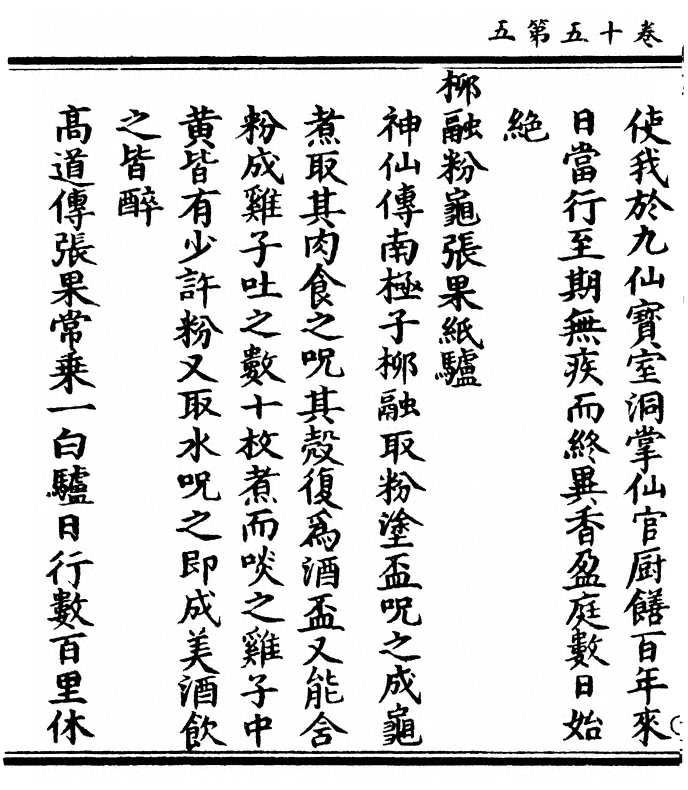 卷十五第五
使我於九仙寶室洞掌仙官厨饍百年來
日當行至期無疾而終異香盈庭數日始
絶
柳融粉龜張果紙驢
神仙傳南極子柳融取粉塗盃呪之成龜
煮取其肉食之呪其殼復爲酒盃又能含
粉成雞子吐之數十枚煮而啖之雞子中
黄皆有少許粉又取水呪之即成美酒飲
之皆醉
高道傳張果常乗一白驢日行數百里休